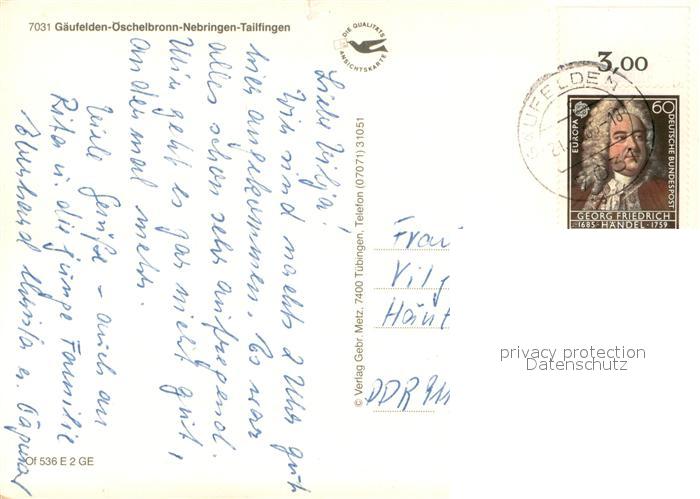 7031 Gäufelden-Öschelbronn-Nebringen-Tailfingen
DIE QUALITÄTS
ANSICHTSKARTE
Liebe Vilja!
Wir sind nachts 2 Uhr gut
hier angekommen. Es war
alles schon sehr aufregend.
Mir geht es gar nicht gut,
andermal mehr.
Viele Grüße – auch an
Rita u. die junge Familie
u.
Of 536 E 2 GE
© Verlag Gebr. Metz, 7400 Tübingen, Telefon (07071) 31051
3,00
GÄUFELDEN
EUROPA
60
DEUTSCHE BUNDESPOST
GEORG FRIEDRICH
1685 · HÄNDEL · 1759
Frau
Vilj
DDR
privacy protection
Datenschutz